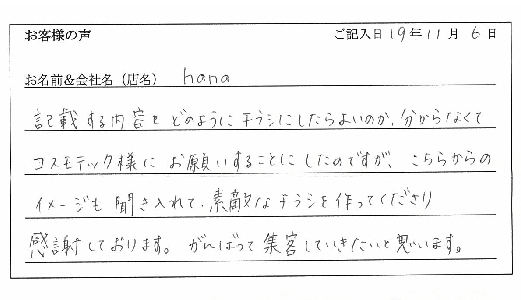 お客様の声 ご記入日 19年 11月 6日
お名前&会社名(店名) hana
記載する内容をどのようにチラシにしたらよいのか、分からなくて
コスモテック様にお願いすることにしたのですが、こちらからの
イメージも聞き入れて、素敵なチラシを作ってくださり
感謝しております。がんばって集客していきたいと思います。